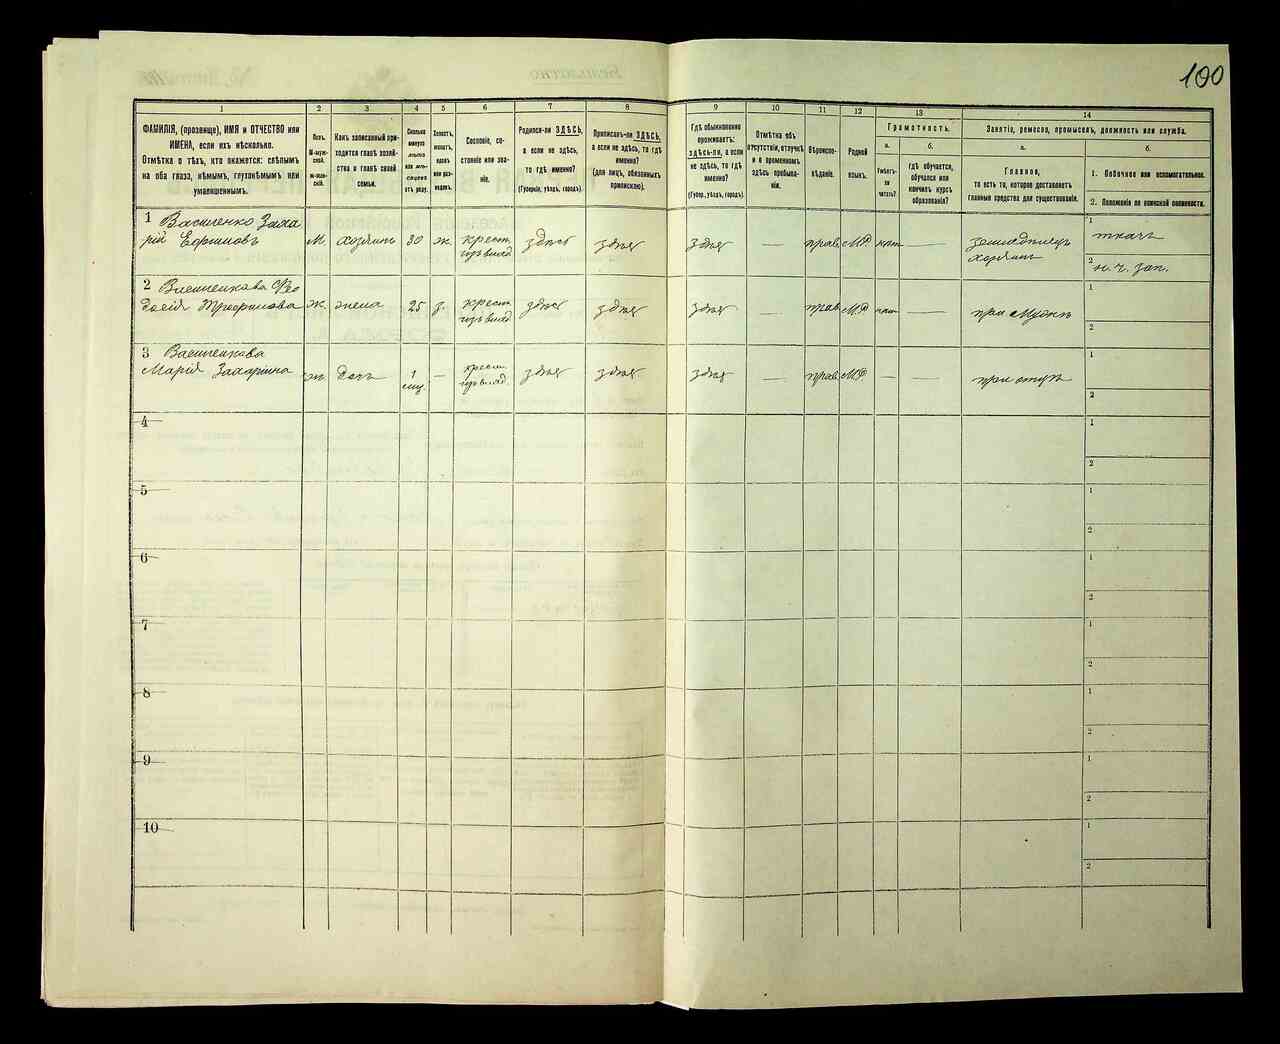 100
1 2 3 4 5 6 7 8 9 10 11 12 13 14
ФАМИЛІЯ, (прозвище), ИМЯ и ОТЧЕСТВО или
ИМЕНА, если ихъ нѣсколько.
Отмѣтка о тѣхъ, кто окажется: слѣпымъ
на оба глаза, нѣмымъ, глухонѣмымъ или
умалишеннымъ.
Полъ.
М-мужской.
Ж-женскій.
Какъ записанный приходится
главѣ хозяйства
и главѣ своей
семьи.
Сколько
минуло
лѣтъ
или мѣсяцевъ
отъ роду.
Холостъ,
женатъ,
вдовъ
или разведенъ.
Сословіе, состояніе
или званіе.
Родился-ли ЗДѢСЬ,
а если не здѣсь,
то гдѣ именно?
(Губернія, уѣздъ, городъ).
Приписанъ-ли ЗДѢСЬ,
а если не здѣсь, то гдѣ
именно?
(для лицъ, обязанныхъ
припискою).
Гдѣ обыкновенно
проживаетъ:
ЗДѢСЬ-ли, а если
не здѣсь, то гдѣ
именно?
(Губер., уѣздъ, городъ).
Отмѣтка объ
отсутствіи, отлучкѣ
и о временномъ
здѣсь пребываніи.
Вѣроисповѣданіе.
Родной
языкъ.
Грамотность.
а.
Умѣетъ-ли
читать?
б.
гдѣ обучается,
обучался или
кончилъ курсъ
образованія?
Занятіе, ремесло, промыселъ, должность или служба.
а.
Главное,
то есть то, которое доставляетъ
главныя средства для существованія.
б.
1. Побочное или вспомогательное.
2. Положеніе по воинской повинности.
1 Василенко Заха
рій Ефимовъ М. хозяинъ 30 ж. крест. здѣсь здѣсь здѣсь — прав. МР нѣтъ — земледѣлецъ хозяинъ 1 ткачъ 2 н. ч. зап.
2 Василенкова Ѳео
досія Трофимова ж. жена 25 з. крест. здѣсь здѣсь здѣсь — прав. МР нѣтъ — при мужѣ 1 2
3 Василенкова
Марія Захаріина ж. дочь 1 мѣс. — крест. здѣсь здѣсь здѣсь — прав. МР — — при отцѣ 1 2
4 1 2
5 1 2
6 1 2
7 1 2
8 1 2
9 1 2
10 1 2